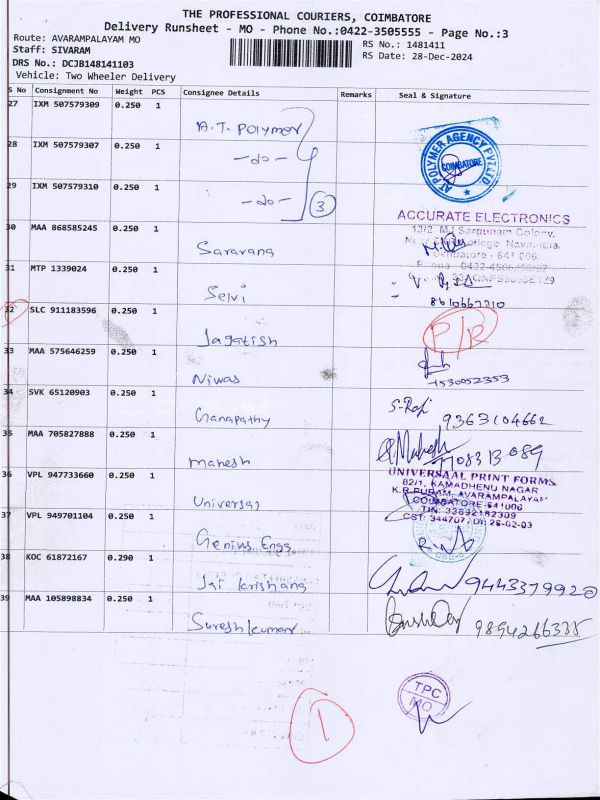 THE PROFESSIONAL COURIERS, COIMBATORE
Delivery Runsheet - MO - Phone No.:0422-3505555 - Page No.:3
Route: AVARAMPALAYAM MO
RS No.: 1481411
Staff: SIVARAM
RS Date: 28-Dec-2024
DRS No.: DCJB148141103
Vehicle: Two Wheeler Delivery
S No Consignment No Weight PCS Consignee Details Remarks Seal & Signature
27 IXM 507579309 0.250 1
A.T. Polymer
28 IXM 507579307 0.250 1
-do-
AT POLYMER AGENCY PVT LTD
COIMBATORE
29 IXM 507579310 0.250 1
-do- 3
ACCURATE ELECTRONICS
30 MAA 868585245 0.250 1
Saravana
31 MTP 1339024 0.250 1
Selvi
8610667710
32 SLC 911183596 0.250 1
Jagatish
P/R
33 MAA 575646259 0.250 1
Niwas
7530052353
34 SVK 65120903 0.250 1
Ganapathy
S-Raji 9363104662
35 MAA 705827888 0.250 1
Mahesh
36 VPL 947733660 0.250 1
Universal
UNIVERSAAL PRINT FORMS
82/1, KAMADHENU NAGAR
K.R.PURAM, AVARAMPALAYAM
COIMBATORE-641006
TIN: 33892182309
37 VPL 949701104 0.250 1
Genius Engg
38 KOC 61872167 0.290 1
Jai Krishana
9443379920
39 MAA 105898834 0.250 1
Sureshkumar
9894266335
TPC
MO
1